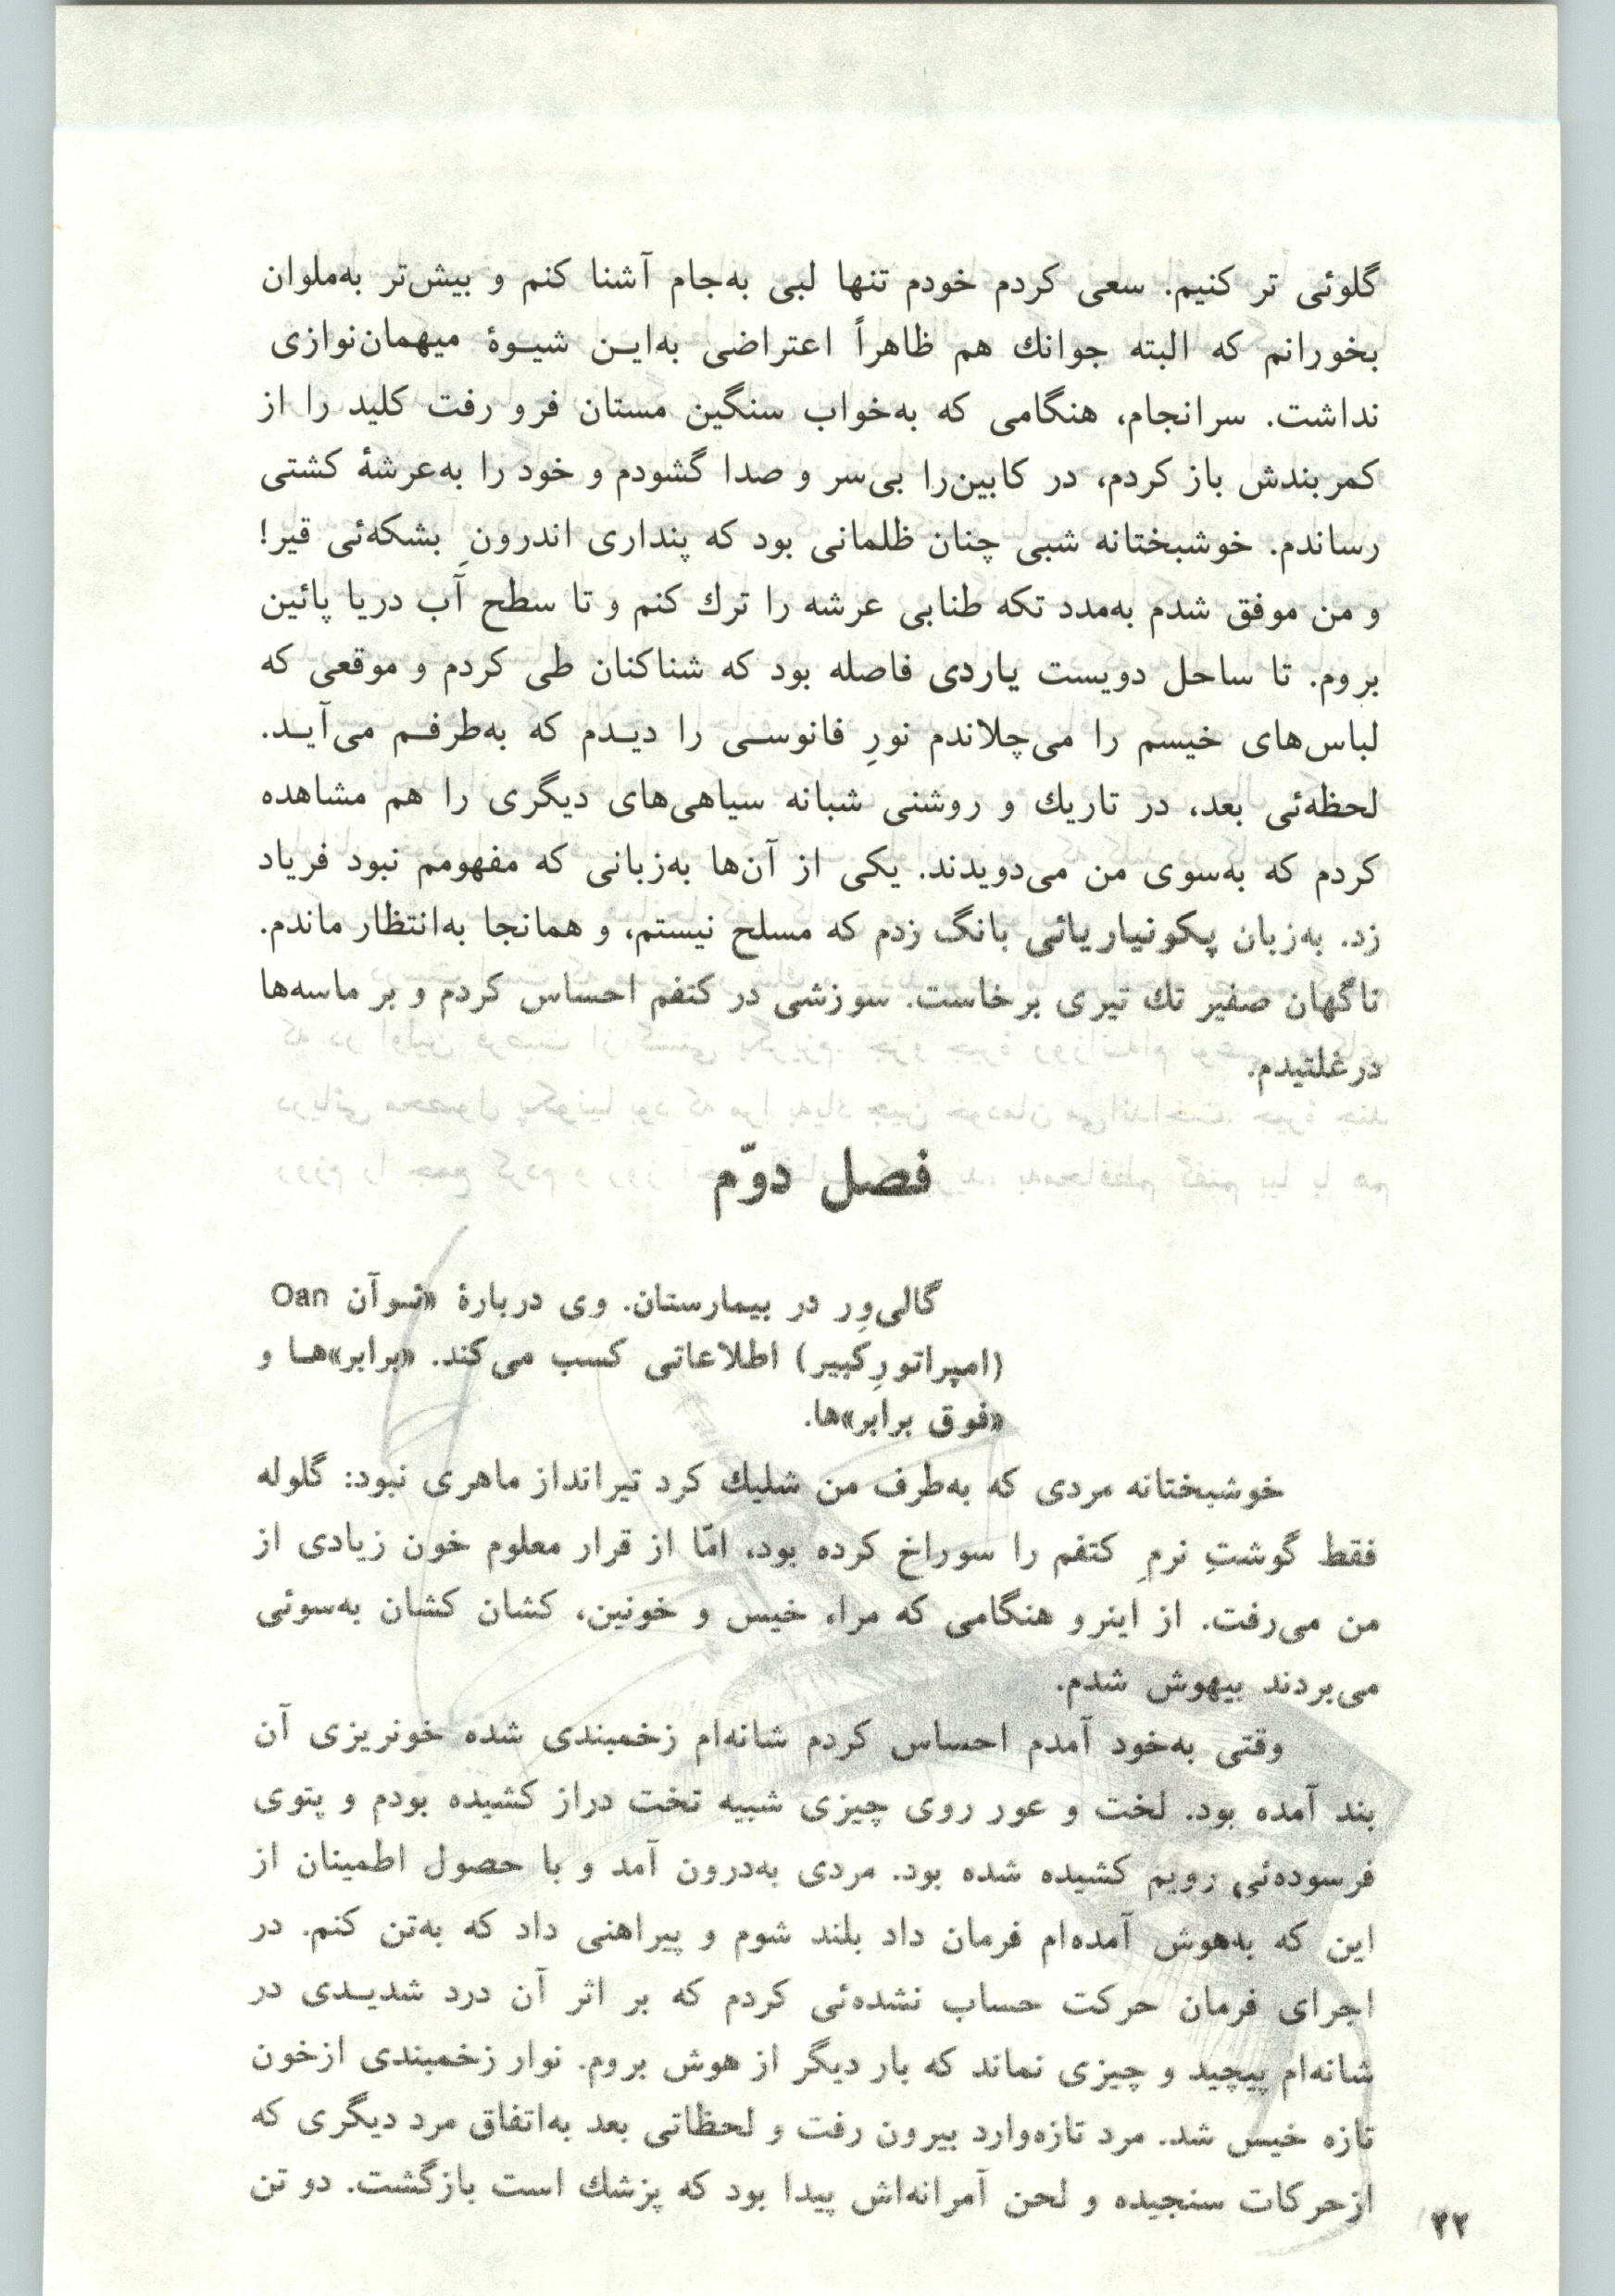 گلوئی تر کنیم. سعی کردم خودم تنها لبی به‌جام آشنا کنم و بیش‌تر به‌ملوان
بخورانم که البته جوانك هم ظاهراً اعتراضی به‌ایـن شیـوهٔ میهمان‌نوازی
نداشت. سرانجام، هنگامی که به‌خواب سنگین مستان فرو رفت کلید را از
کمربندش باز کردم، در کابین‌را بی‌سر و صدا گشودم و خود را به‌عرشهٔ کشتی
رساندم. خوشبختانه شبی چنان ظلمانی بود که پنداری اندرونِ بشکه‌ئی قیر!
و من موفق شدم به‌مدد تکه طنابی عرشه را ترك کنم و تا سطح آب دریا پائین
بروم. تا ساحل دویست یاردی فاصله بود که شناکنان طی کردم و موقعی که
لباس‌های خیسم را می‌چلاندم نورِ فانوسـی را دیـدم که به‌طرفـم می‌آیـد.
لحظه‌ئی بعد، در تاریك و روشنی شبانه سیاهی‌های دیگری را هم مشاهده
کردم که به‌سوی من می‌دویدند. یکی از آن‌ها به‌زبانی که مفهومم نبود فریاد
زد. به‌زبان پکونیاریائی بانگ زدم که مسلح نیستم، و همانجا به‌انتظار ماندم.
ناگهان صفیر تك تیری برخاست. سوزشی در کتفم احساس کردم و بر ماسه‌ها
درغلتیدم.
فصل دوّم
گالی‌وِر در بیمارستان. وی دربارهٔ «ئـوآن Oan
(امپراتورِکبیر) اطلاعاتی کسب می‌کند. «برابر»هـا و
«فوق برابر»ها.
خوشبختانه مردی که به‌طرف من شلیك کرد تیرانداز ماهری نبود: گلوله
فقط گوشتِ نرمِ کتفم را سوراخ کرده بود، امّا از قرار معلوم خون زیادی از
من می‌رفت. از اینرو هنگامی که مرا، خیس و خونین، کشان کشان به‌سوئی
می‌بردند بیهوش شدم.
وقتی به‌خود آمدم احساس کردم شانه‌ام زخمبندی شده خونریزی آن
بند آمده بود. لخت و عور روی چیزی شبیه تخت دراز کشیده بودم و پتوی
فرسوده‌ئی رویم کشیده شده بود. مردی به‌درون آمد و با حصول اطمینان از
این که به‌هوش آمده‌ام فرمان داد بلند شوم و پیراهنی داد که به‌تن کنم. در
اجرای فرمان حرکت حساب نشده‌ئی کردم که بر اثر آن درد شدیـدی در
شانه‌ام پیچید و چیزی نماند که بار دیگر از هوش بروم. نوار زخمبندی ازخون
تازه خیس شد. مرد تازه‌وارد بیرون رفت و لحظاتی بعد به‌اتفاق مرد دیگری که
ازحرکات سنجیده و لحن آمرانه‌اش پیدا بود که پزشك است بازگشت. دو تن
۲۲